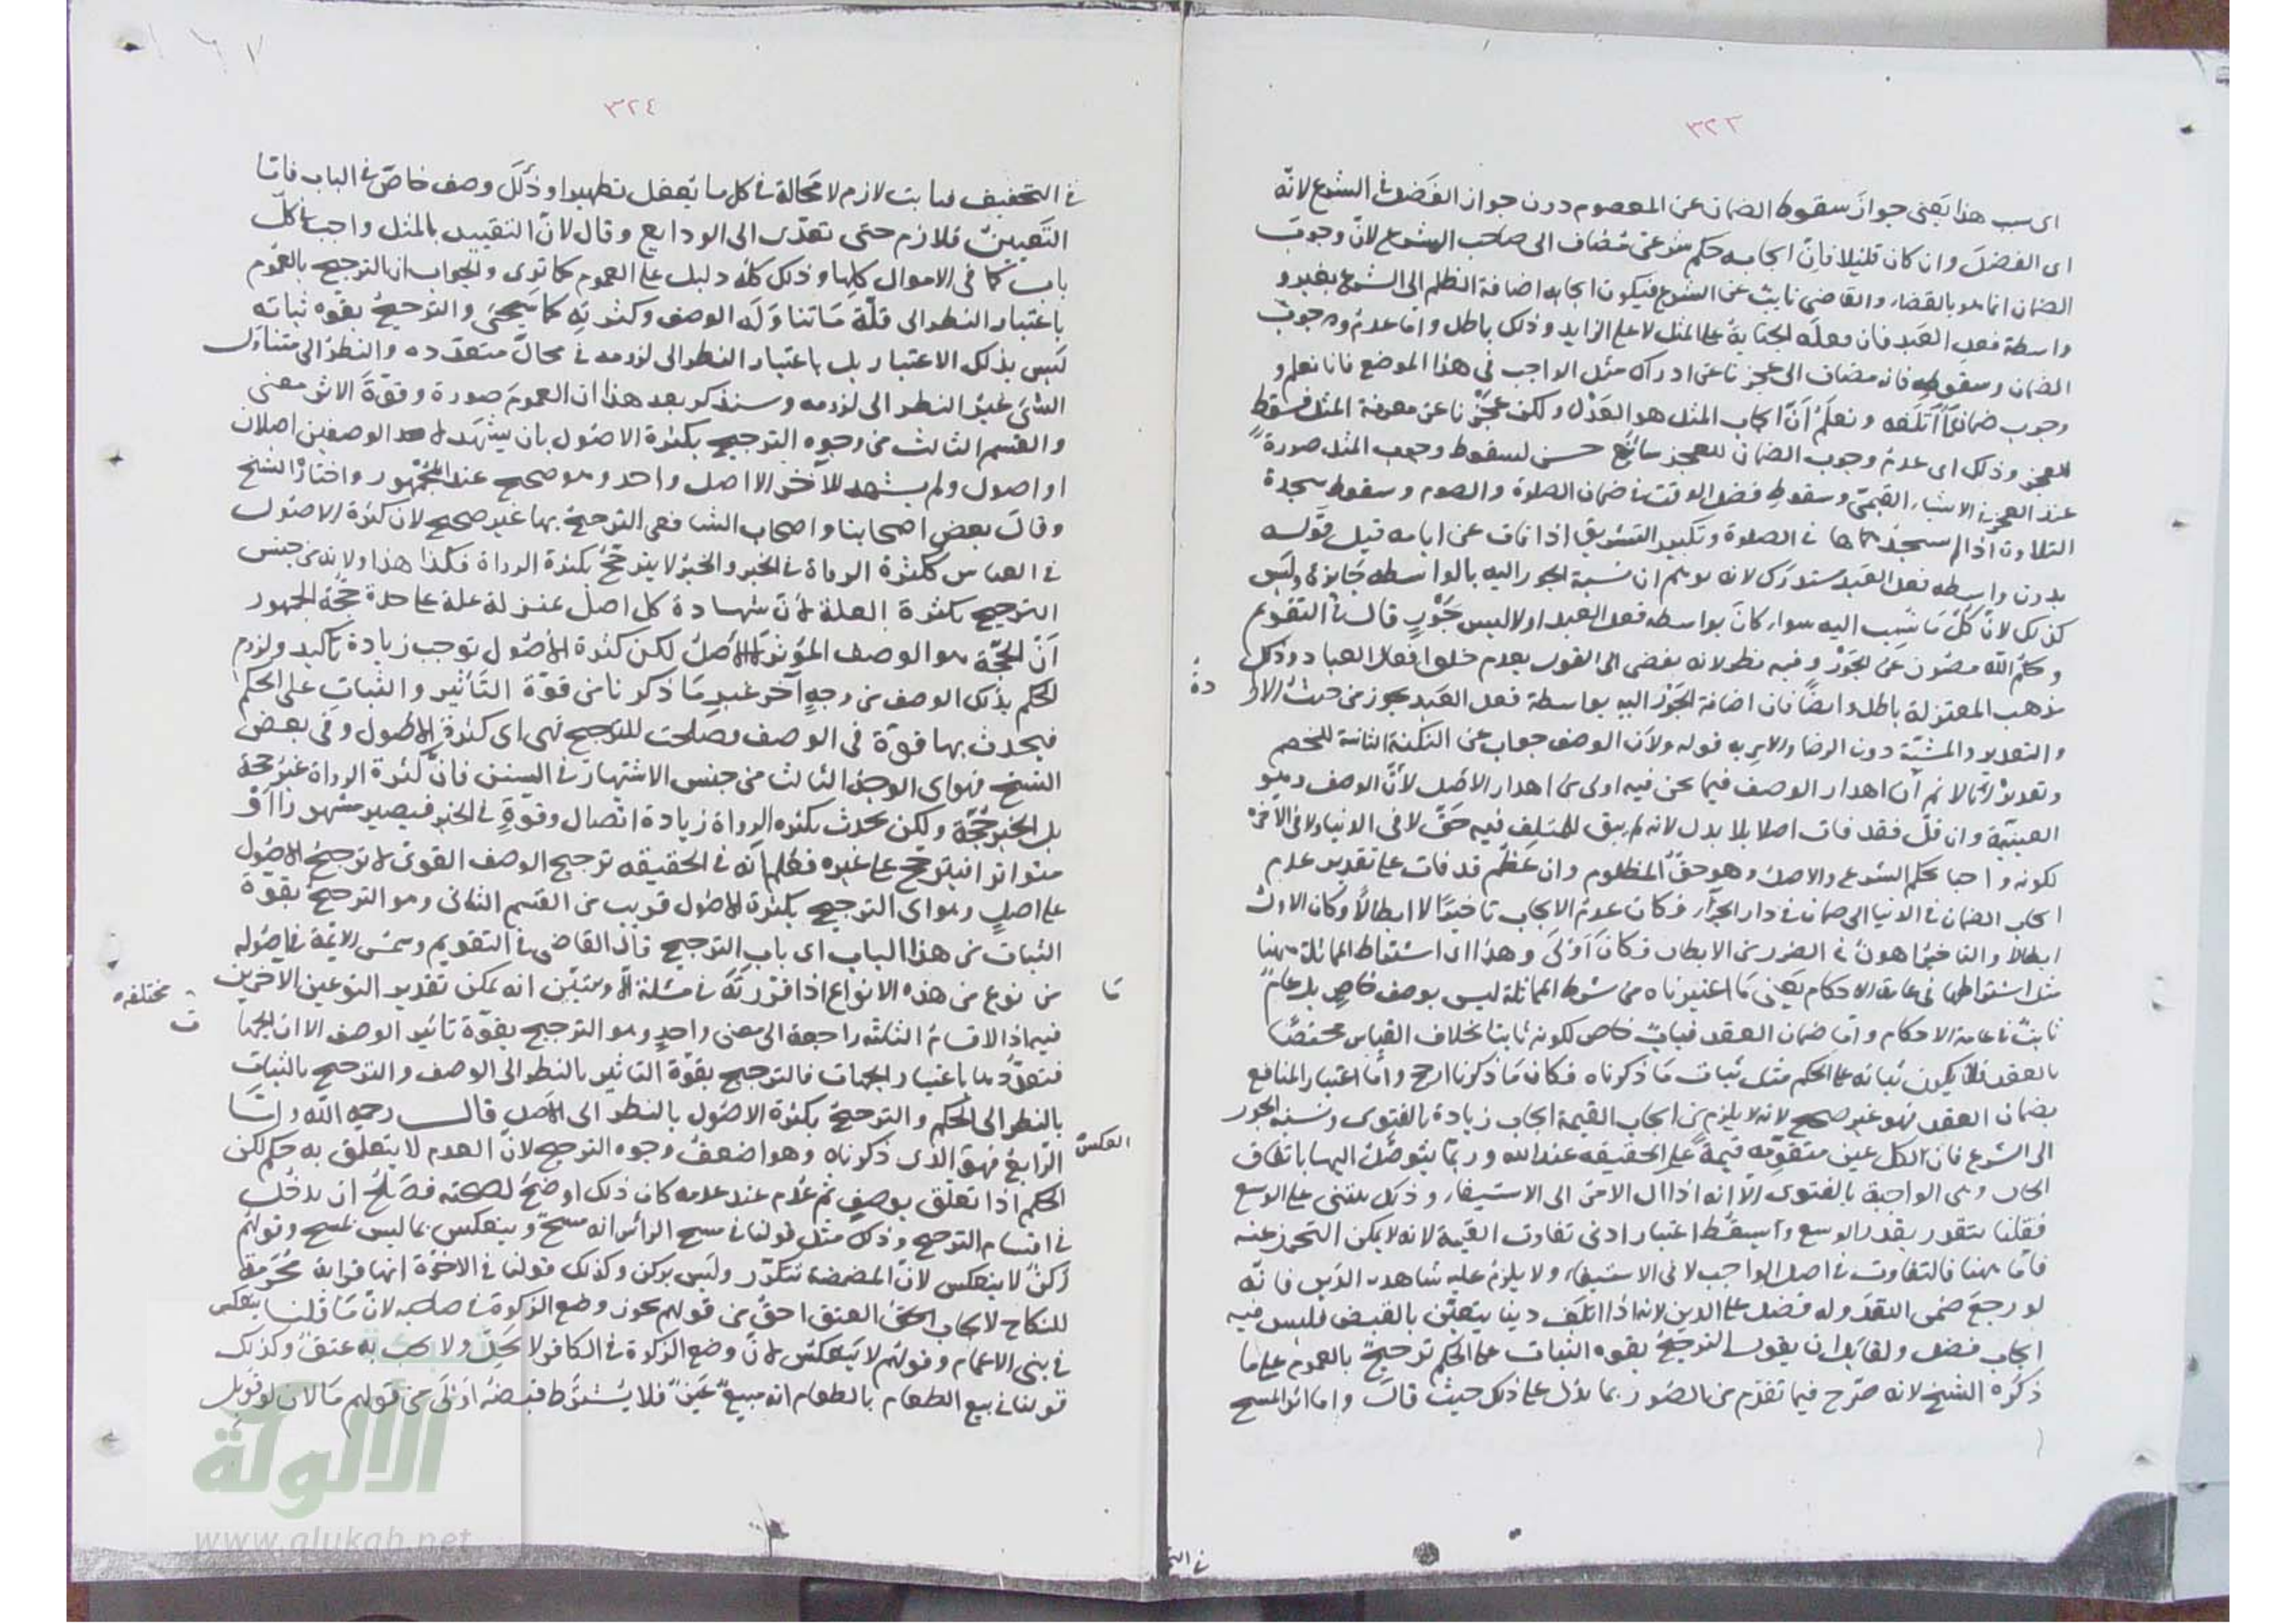 ٣٢٣
اى سبب هذا يعنى جواز سقوط الضمان عن المعصوم دون جواز الفضل فى الشرع لانه
اى الفضل وان كان قليلا فان ايجابه حكم شرعى مضاف الى صاحب الشرع لان وجوب
الضمان انما هو بالقضاء والقاضى نايب عن الشرع فيكون ايجابه اضافة الظلم الى الشرع بغير
واسطة فعل العبد فان فعله الجناية على المثل لا على الزايد وذلك باطل واما عدم وجوب
الضمان وسقوطه فانه مضاف الى عجزنا عن ادراك مثل الواجب فى هذا الموضع فانا نعلم
وجوب ضمان ما أتلفه ونعلم أن ايجاب المثل هو العدل ولكن عجزنا عن معرفة المثل فسقط
للعجز وذلك اى عدم وجوب الضمان للعجز سائغ حسن لسقوط وجوب المثل صورة
عند العجز فى الاشياء القيمى وسقوط فضل الوقت فى ضمان الصلاة والصوم وسقوط سجدة
التلاوة اذا لم يسجدها فى الصلوة وتكبير التشريق اذا فات عن ايامه قيل قوله
بدون واسطه فعل العبد مستدرك لانه يوهم ان نسبة الجور اليه بالواسطه جايزة وليس
كذلك لان كل ما نسب اليه سواء كان بواسطه فعل العبد او لا ليس بجور قال فى التقويم
وحكم الله مصون عن الجور وفيه نظر لانه يفضى الى القول بعدم خلق افعال العباد وذلك
مذهب المعتزلة باطل وايضا فان اضافة الجور اليه بواسطة فعل العبد يجوز من حيث الارا
دة
والتقدير والمشية دون الرضا والامر به قوله ولان الوصف جواب عن النكتة الثانية للخصم
وتقديره انا لا نم أن اهدار الوصف فيما نحن فيه اولى من اهدار الاصل لأن الوصف وهو
العينية وان قل فقد فات اصلا بلا بدل لانه لم يبق للمتلف فيه حق لا فى الدنيا ولا فى الاخره
لكونه واجبا بحكم الشرع والاصل وهو حق المظلوم وان عظم قد فات على تقدير عدم
ايجاب الضمان فى الدنيا الى ضمان فى دار الجزاء فكان عدم الايجاب تاخيرا لا ابطالا وكان الاول
ابطالا والتاخير اهون فى الضرر من الابطال فكان أولى وهذا اى اشتراط المماثلة ههنا
مثل اشتراطها فى عامة الاحكام يعنى ما اعتبرناه من شرط المماثلة ليس بوصف خاص بل عام
ثابت فى عامة الاحكام واما ضمان العقد فباب خاص لكونه ثابتا بخلاف القياس مختصا
بالعقد فلا يكون ثباته على الحكم مثل ثبات ما ذكرناه فكان ما ذكرنا ارجح وأما اعتبار المنافع
بضمان العقد فهو غير صحيح لانه لا يلزم من ايجاب القيمة ايجاب زيادة بالفتوى ونسبة الجور
الى الشرع فان لكل عين متقومه قيمة على الحقيقه عند الله وربما يتوصل اليها باتفاق
الحال وهى الواجبة بالفتوى الا انه اذا ال الامر الى الاستيفاء وذلك يبتنى على الوسع
فقلنا يتقدر بقدر الوسع وأسقط اعتبار ادنى تفاوت القيمة لانه لا يمكن التحرز عنه
فأما ههنا فالتفاوت فى اصل الواجب لا فى الاستيفاء ولا يلزم عليه شاهدا الدين فانه
لو رجع ضمن النقد وله فضل على الدين لانه اذا اتلف دينا يتعين بالقبض فليس فيه
ايجاب فضل ولقايل ان يقول الترجيح بقوه الثبات على الحكم ترجيح بالعموم على ما
ذكره الشيخ لانه صرح فيما تقدم من الصور بما يدل على ذلك حيث قال واما اثر المسح
فى التخ
٣٢٤
فى التخفيف فثابت لازم لا محالة فى كل ما يعقل تطهيرا وذلك وصف خاص فى الباب فاما
التعيين فلازم حتى تعدى الى الودايع وقال لان التقييد بالمثل واجب فى كل
باب كما فى الاموال كلها وذلك كله دليل على العموم كما ترى والجواب ان الترجيح بالعموم
باعتبار النظر الى قلة ما تناوله الوصف وكثرته كما سيجئ والترجيح بقوه ثباته
ليس بذلك الاعتبار بل باعتبار النظر الى لزومه فى محال متعدده والنظر الى متناول
الشئ غير النظر الى لزومه وسنذكر بعد هذا ان العموم صورة وقوة الاثر معنى
والقسم الثالث من وجوه الترجيح بكثرة الاصول بان يشهد لاحد الوصفين اصلان
او اصول ولم يشهد للآخر الا اصل واحد وهو صحيح عند الجمهور واختاره الشيخ
وقال بعض اصحابنا واصحاب الشافعى الترجيح بها غير صحيح لان كثرة الاصول
فى القياس ككثرة الرواة فى الخبر والخبر لا يترجح بكثرة الرواة فكذا هذا ولانه من جنس
الترجيح بكثرة العلة لان شهادة كل اصل بمنزلة علة على حدة حجة الجمهور
أن الحجة هو الوصف المؤثر لا الاصل لكن كثرة الاصول توجب زيادة تاكيد ولزوم
الحكم بذلك الوصف من وجه آخر غير ما ذكرنا من قوة التأثير والثبات على الحكم
فيحدث بها قوة فى الوصف فصلحت للترجيح فهى اى كثرة الاصول وفى بعض
النسخ فهو اى الوجه الثالث من جنس الاشتهار فى السنن فان كثرة الرواة غير حجة
بل الخبر حجة ولكن يحدث بكثره الرواة زيادة اتصال وقوة فى الخبر فيصير مشهورا أو
متواترا فيترجح على غيره فعلم انه فى الحقيقه ترجيح الوصف القوى لا ترجيح الاصول
على اصل وهو اى الترجيح بكثرة الاصول قريب من القسم الثانى وهو الترجيح بقوة
الثبات من هذا الباب اى باب الترجيح قال القاضى فى التقويم وشمس الائمة فى اصوله
ما من نوع من هذه الانواع اذا قررته فى مسئلة الا وتبين انه يمكن تقدير النوعين الاخرين
فيه اذ الاقسام الثلثه راجعة الى معنى واحد وهو الترجيح بقوة تاثير الوصف الا ان الجهات
مختلفه
فتعددها باعتبار الجهات فالترجيح بقوة التاثير بالنظر الى الوصف والترجيح بالثبات
بالنظر الى الحكم والترجيح بكثرة الاصول بالنظر الى الاصل قال رحمه الله واما
العكس
الرابع فهو الذى ذكرناه وهو اضعف وجوه الترجيح لان العدم لا يتعلق به حكم لكن
الحكم اذا تعلق بوصف ثم عدم عند عدمه كان ذلك اوضح لصحته فصلح ان يدخل
فى اقسام الترجيح وذلك مثل قولنا فى مسح الرأس انه مسح وينعكس بما ليس بمسح وقولهم
ركن لا ينعكس لان المضمضة تتكرر وليس بركن وكذلك قولنا فى الاخوة انها قرابة محرمة
للنكاح لايجاب العتق احق من قولهم يجوز وضع الزكوة فى صاحبه لان ما قلنا ينعكس
فى بنى الاعمام وقولهم لا ينعكس لان وضع الزكوة فى الكافر لا يحل ولا يجب به عتق وكذلك
قولنا فى بيع الطعام بالطعام انه مبيع عين فلا يشترط قبضه اولى من قولهم مالان لو قوبل
شبكة
الألوكة
www.alukah.net